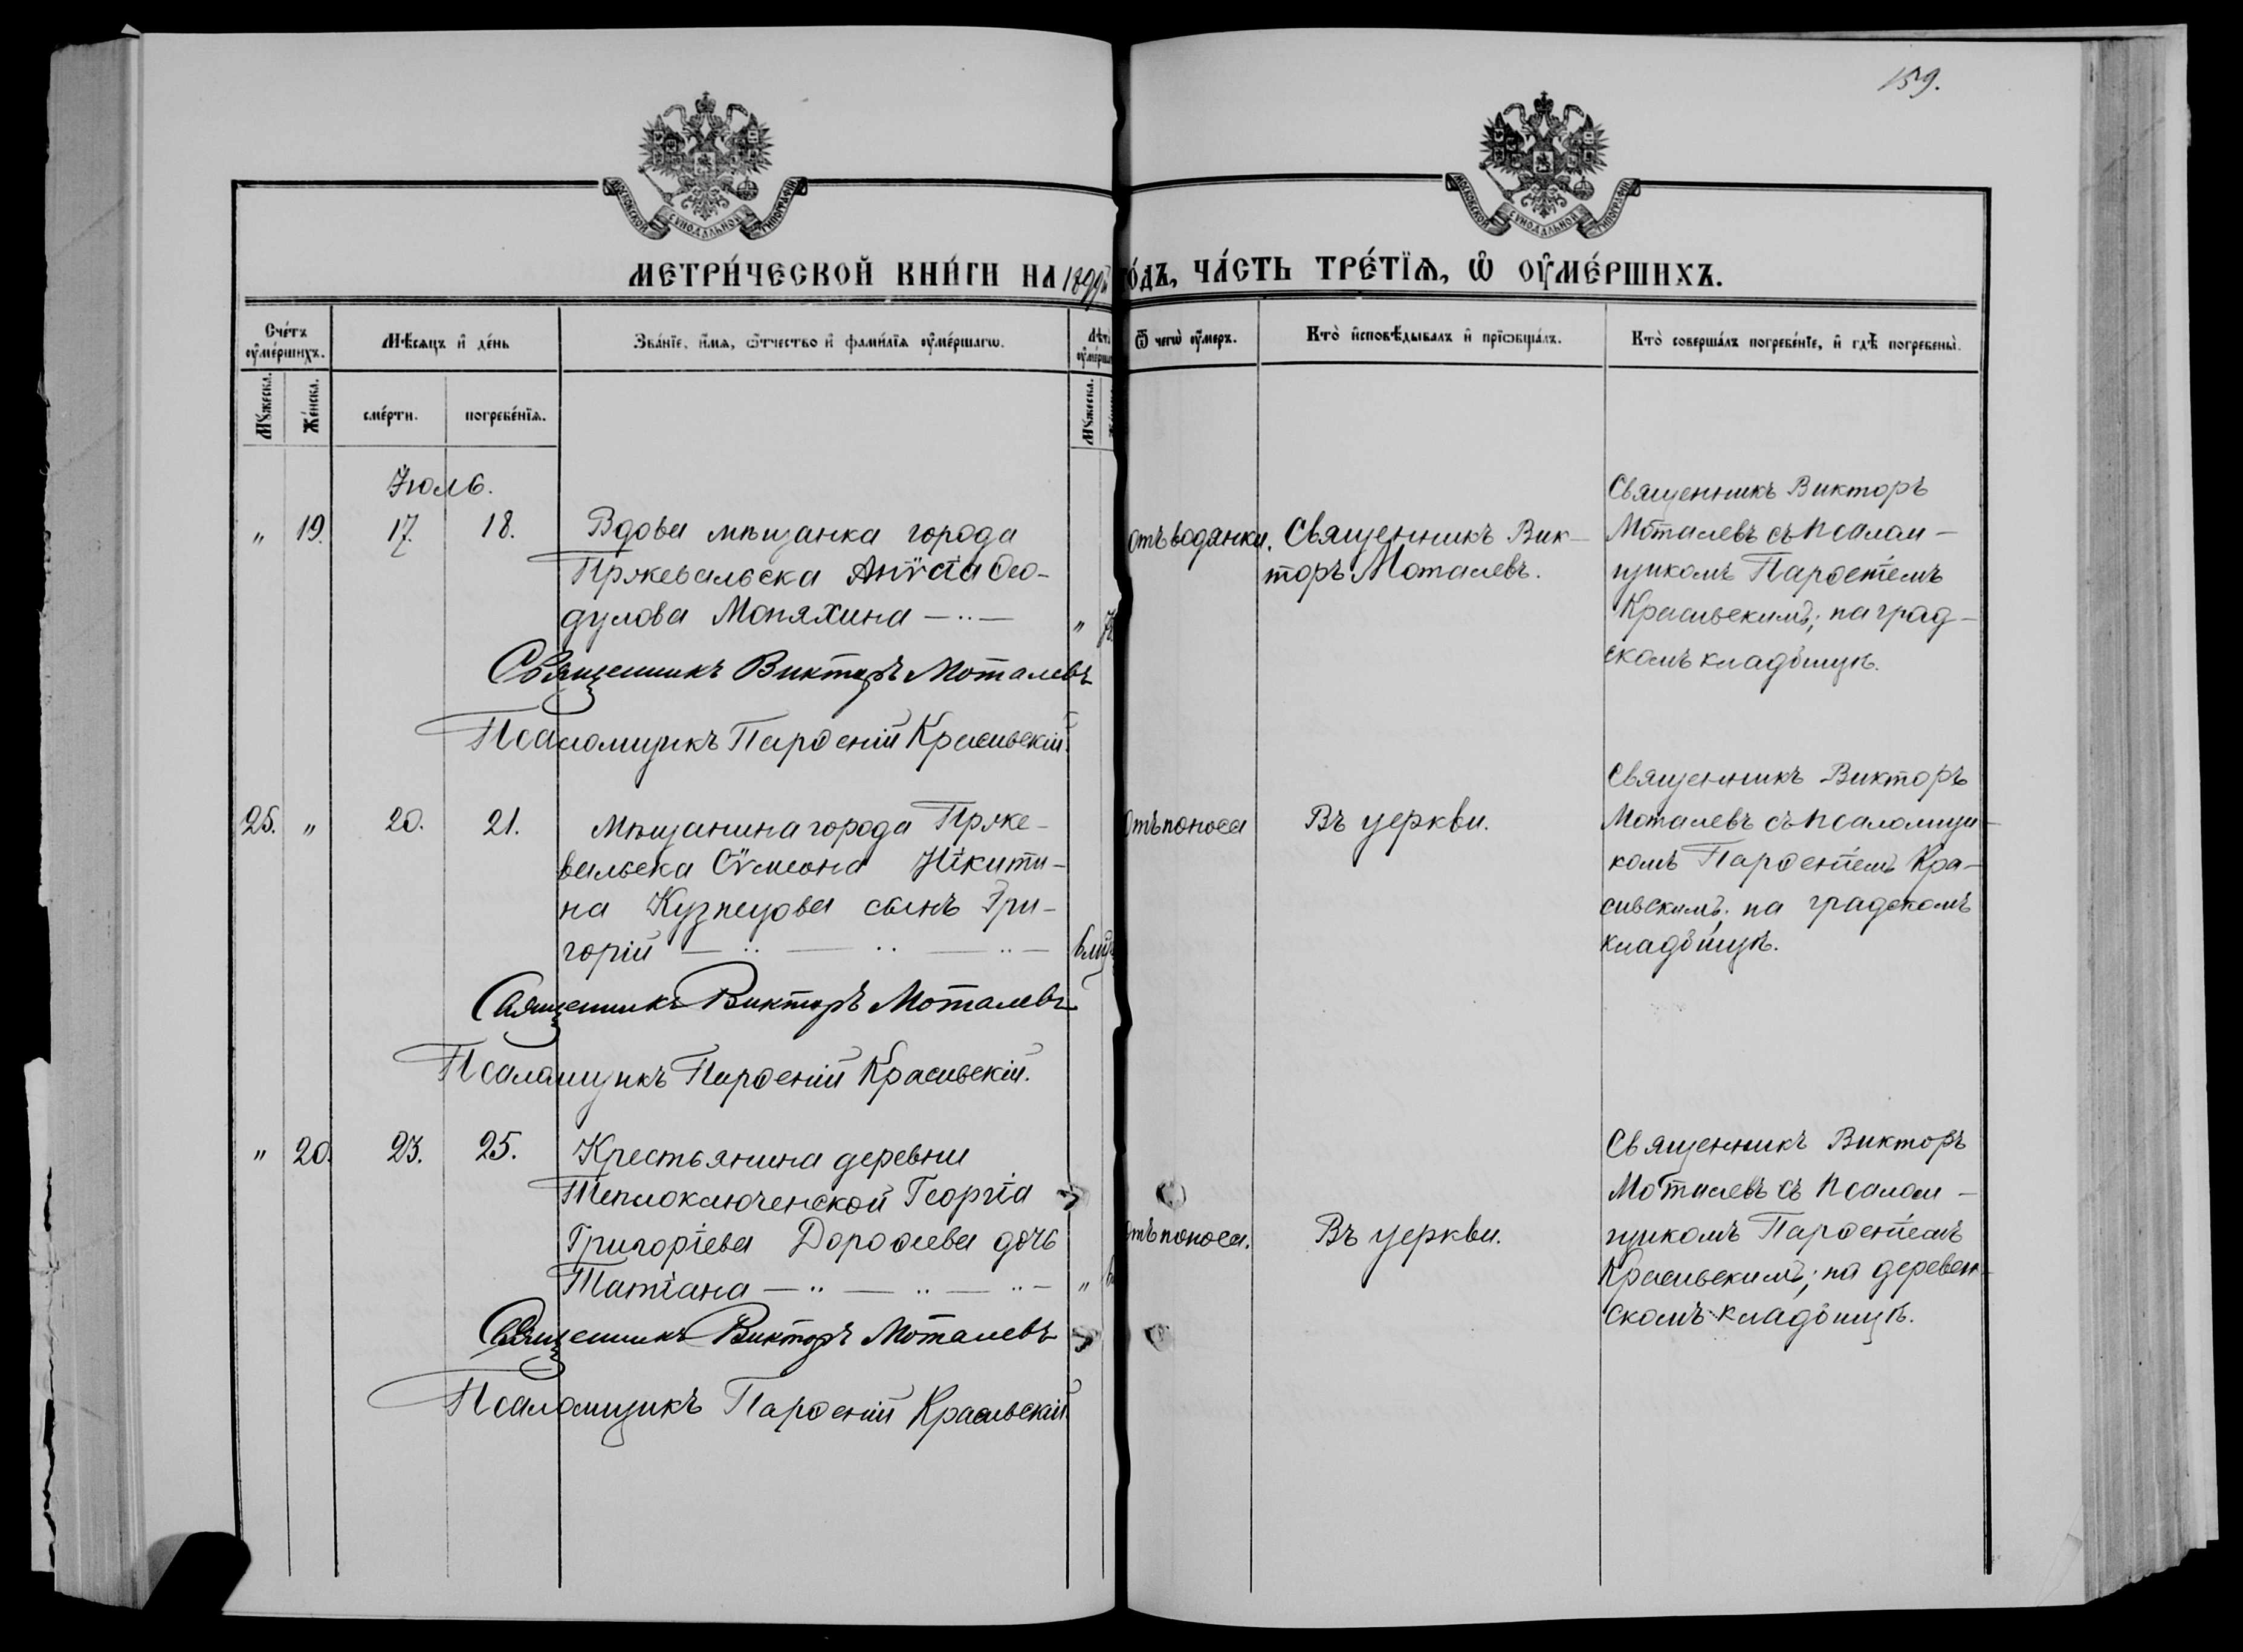 159.
МОСКОВСКОЙ СУНОДАЛЬНОЙ ТИПОГРАФІИ
МОСКОВСКОЙ СУНОДАЛЬНОЙ ТИПОГРАФІИ
МЕТРИ́ЧЕСКОЙ КНИ́ГИ НА 1899й
О́ДЪ, ЧА́СТЬ ТРЕ́ТЇѦ, Ѡ҆ ОУ҆МЕ́РШИХЪ.
Сче́тъ
оу҆ме́ршихъ.
Мѣ́сяцъ и҆ де́нь
Зва́нїе, и҆́мѧ, ѻ҆́тчество и҆ фами́лїѧ оу҆ме́ршагѡ.
Лѣ́т
оу҆ме́рша
Ѿ чегѡ̀ оу҆́меръ.
Кто̀ и҆сповѣ́дывалъ и҆ прїѡбща́лъ.
Кто̀ соверша́лъ погребе́нїе, и҆ гдѣ̀ погребены̀.
Мꙋ́жеска.
Же́нска.
сме́рти.
погребе́нїѧ.
Мꙋ́жеска.
Іюль.
" 19. 17. 18.
Вдова мѣщанка города
Пржевальска Анѵсіа Ѳео-
дулова Моняхина — " —
"
Священникъ Викторъ Моталевъ
Псаломщикъ Парѳеній Красивскій.
отъ водянки.
Священникъ Вик-
торъ Моталевъ.
Священникъ Викторъ
Моталевъ съ псалом-
щикомъ Парѳеніемъ
Красивскимъ; на град-
скомъ кладбищѣ.
25. " 20. 21.
Мѣщанина города Прже-
вальска Сѵмеона Никити-
на Кузнецова сынъ Гри-
горій — " — " — " —
Священникъ Викторъ Моталевъ
Псаломщикъ Парѳеній Красивскій.
Отъ поноса
Въ церкви.
Священникъ Викторъ
Моталевъ съ псаломщи-
комъ Парѳеніемъ Кра-
сивскимъ; на градскомъ
кладбищѣ.
" 20. 23. 25.
Крестьянина деревни
Теплоключенской Георгіа
Григоріева Дороѳеева дочь
Татіана — " — " — " —
"
Священникъ Викторъ Моталевъ
Псаломщикъ Парѳеній Красивскій.
отъ поноса.
Въ церкви.
Священникъ Викторъ
Моталевъ съ псалом-
щикомъ Парѳеніемъ
Красивскимъ; на деревен-
скомъ кладбищѣ.